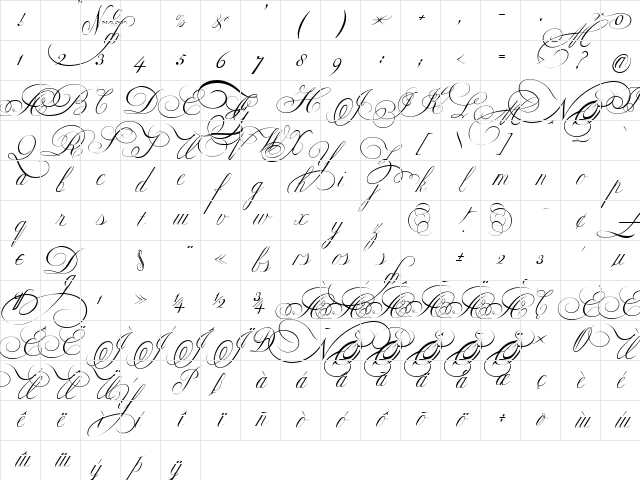 ! % & ' ( ) * + , - .
1 2 3 4 5 6 7 8 9 : ; < = ? @
A B C D E H I J K L M N O
Q R S T U V W X Y Z [ \ ]
a b c d e f g h i j k l m n o p
q r s t u v w x y z { } ~ ¢ £
§ ¨ « ± 2 3 ´ µ
1 » ¼ ½ ¾ À Á Â Ã Ä Å Ç È É
Ê Ë Ì Í Î Ï Ð Ñ Ò Ó Ô Õ Ö × Ø Ù
Ú Û Ü Ý P ß à á â ã ä å æ ç è é
ê ë ì í î ï ñ ò ó ô õ ö ÷ ø ù ú
û ü ý þ ÿ